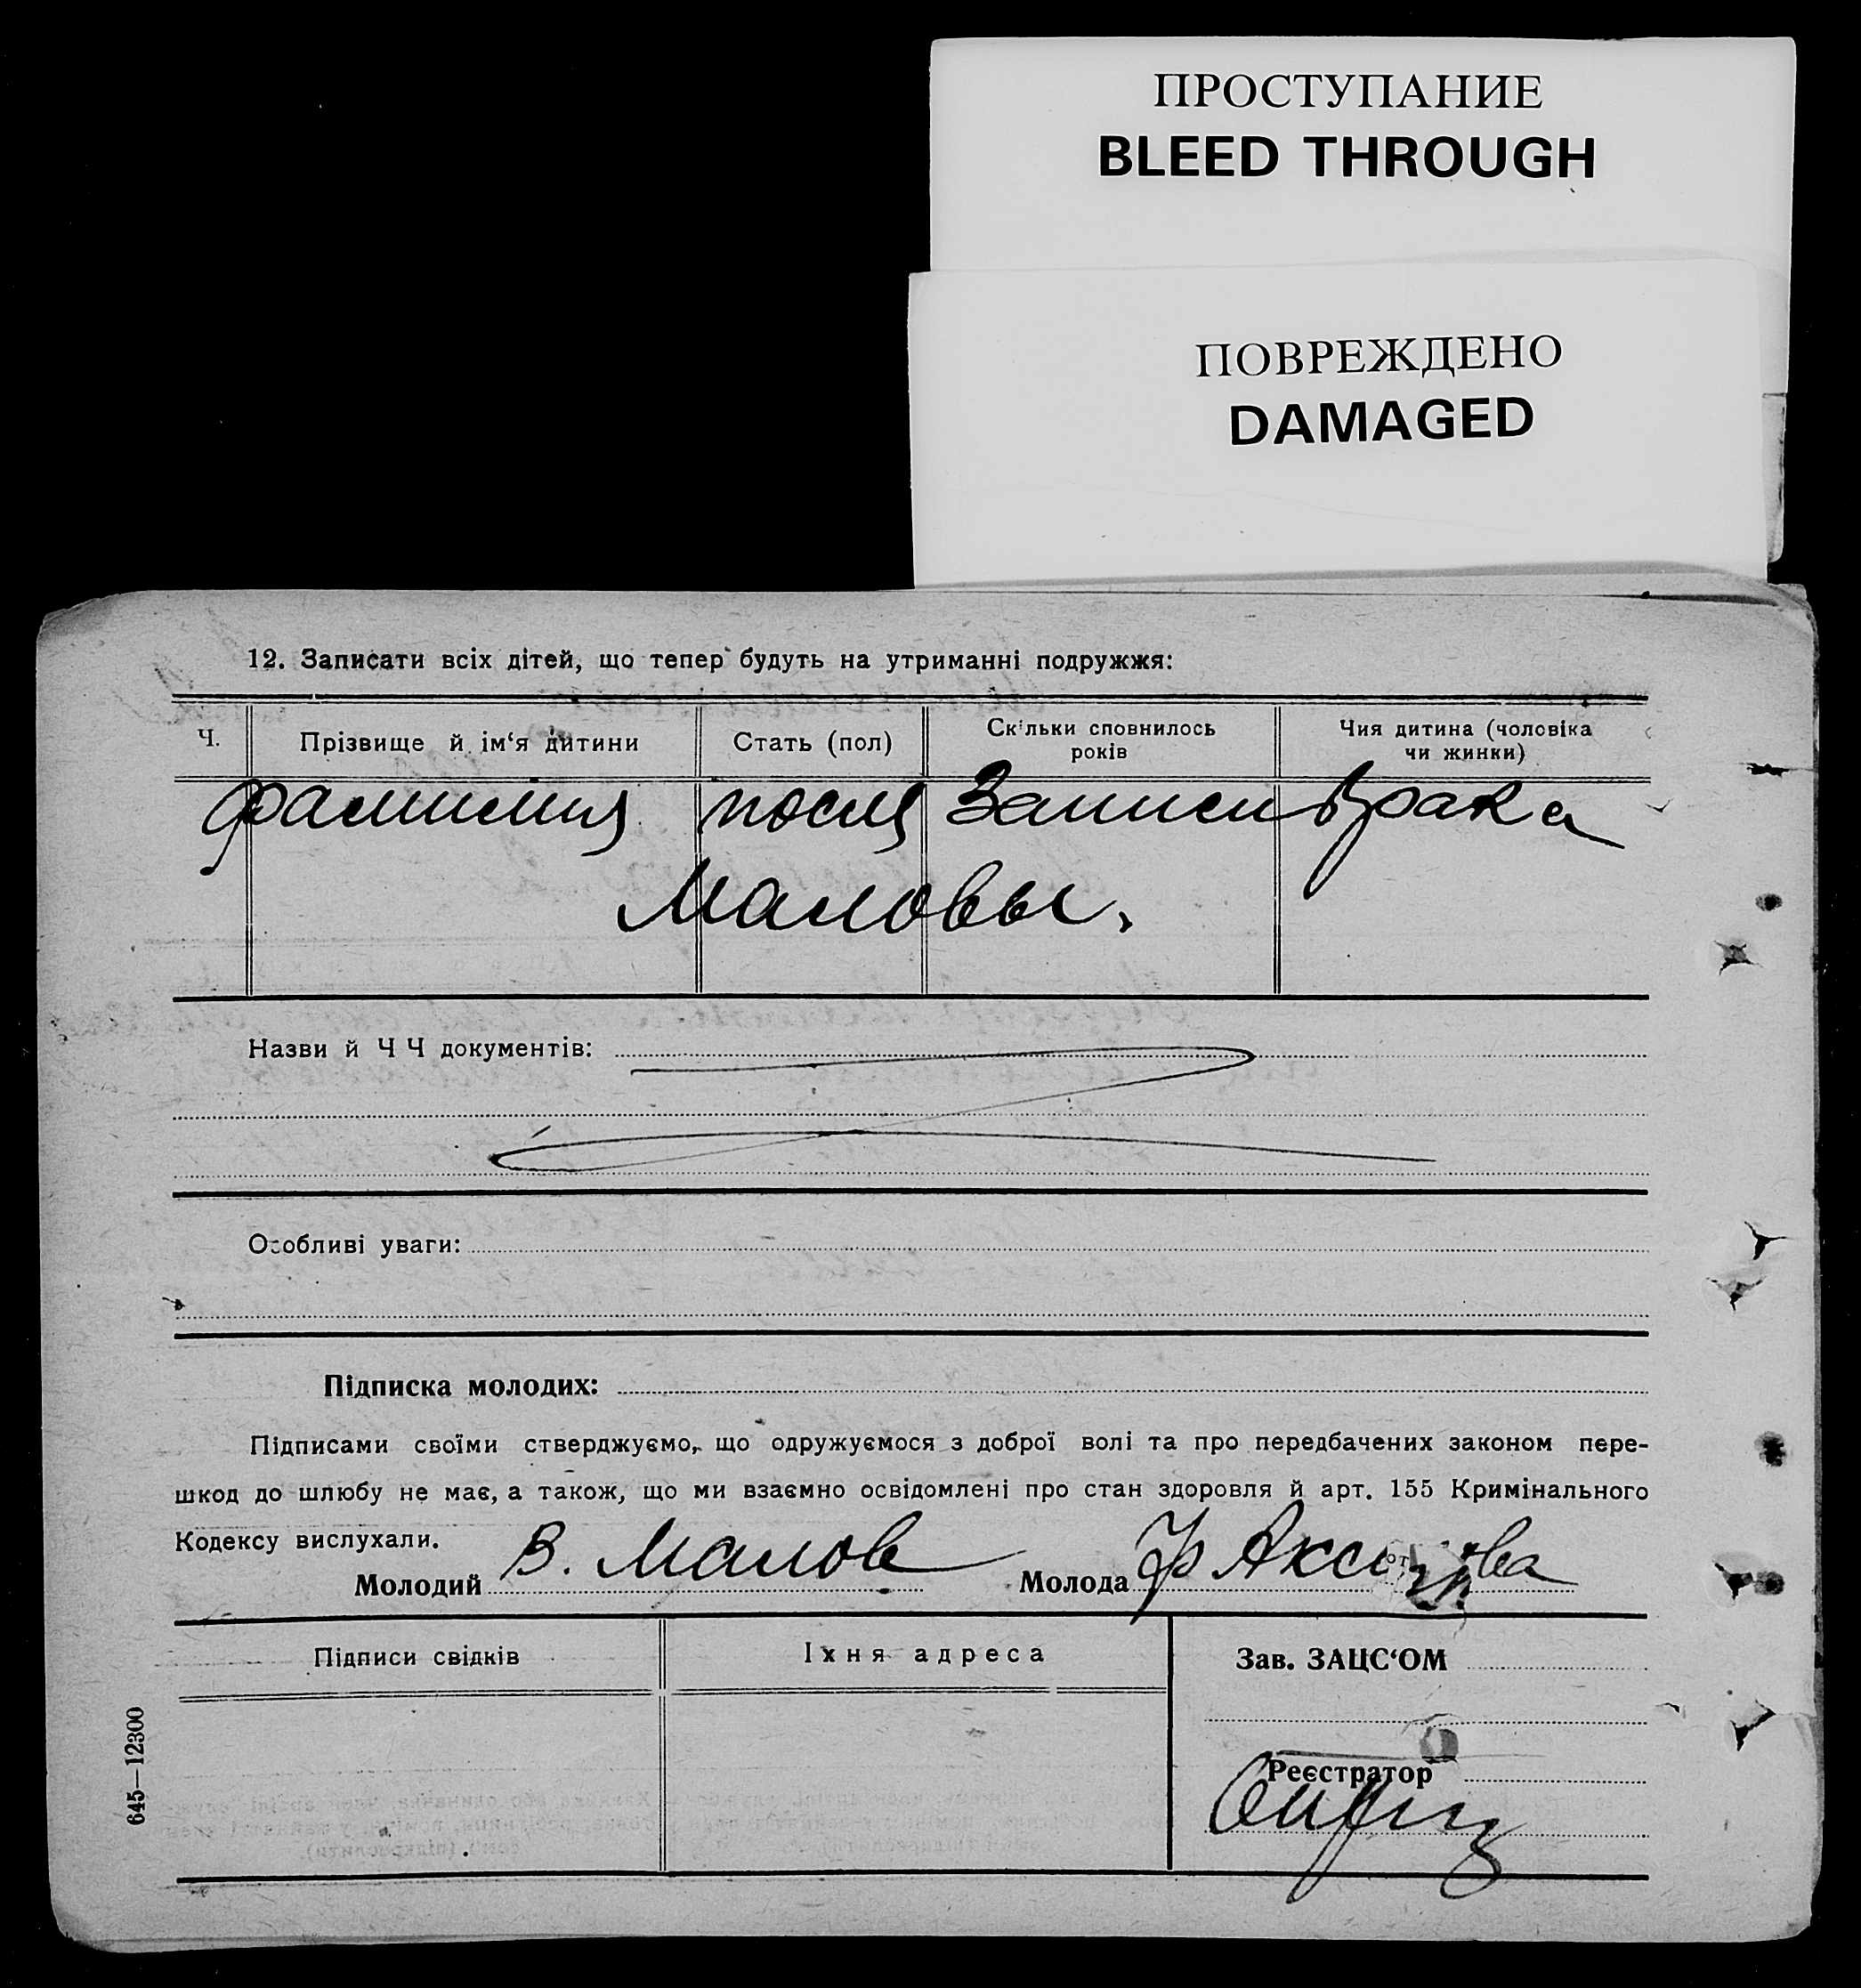 ПРОСТУПАНИЕ
BLEED THROUGH
ПОВРЕЖДЕНО
DAMAGED
12. Записати всіх дітей, що тепер будуть на утриманні подружжя:
Ч. Прізвище й ім‘я дитини Стать (пол) Скільки сповнилось років Чия дитина (чоловіка чи жинки)
Фамилия после Записи брака
Маловы.
Назви й Ч Ч документів:
Особливі уваги:
Підписка молодих:
Підписами своїми стверджуємо, що одружуємося з доброї волі та про передбачених законом пере-
шкод до шлюбу не має, а також, що ми взаємно освідомлені про стан здоровля й арт. 155 Кримінального
Кодексу вислухали.
Молодий В. Малов Молода Ф
Підписи свідків Іхня адреса Зав. ЗАЦС‘ОМ
Реєстратор
645—12300